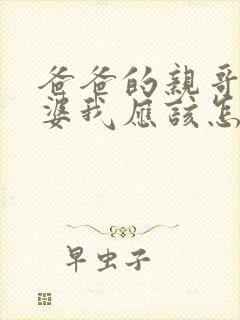 爸爸的親哥
婆我應該怎
早虫子